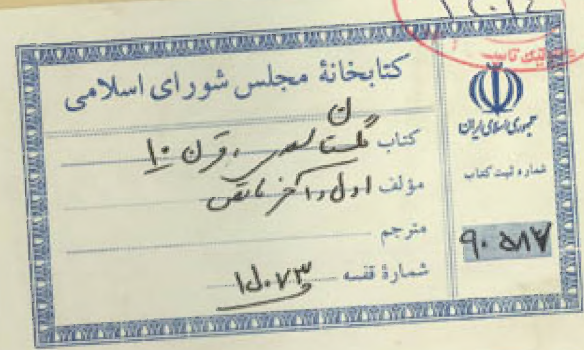 کتابخانهٔ مجلس شورای اسلامی
کتاب گلستان سعدی، قرن ۱۰
مؤلف اول و آخر ناقص
مترجم
شمارهٔ قفسه ۱۵۰۷۳
جمهوری اسلامی ایران
شماره ثبت کتاب
۹۰۵۸۱۷